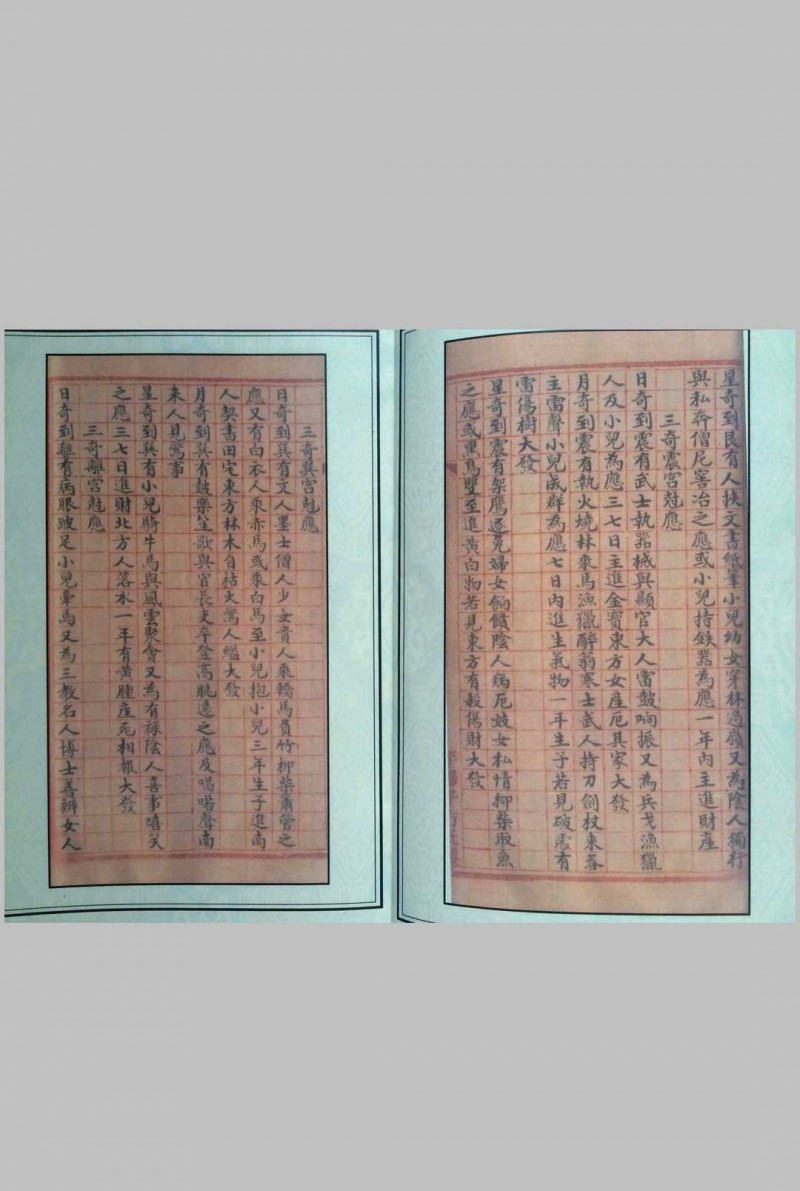 星奇到艮有人挾文書紙筆小兒幼女穿林過嶺又為陰人獨行
與私奔僧尼窰冶之應或小兒持鉄器為應一年內主進財產
三奇震宮尅應
日奇到震有武士執器械與顯官大人雷鼓响振又為兵戈漁獵
人及小兒為應三七日主進金寶東方女產厄其家大發
月奇到震有執火燒林乘馬漁獵醉翁寒士武人持刀劍杖來喜
主雷聲小兒成群為應七日內進生氣物一年生子若見破處有
雷傷樹大發
星奇到震有架鷹逐兔婦女餉饋陰人病厄妓女私情柳柴取魚
之應或黑鳥雙至進黃白物若見東方有穀傷財大發
三奇巽宮尅應
日奇到巽有文人墨士僧人少女貴人乘轎馬負竹柳柴簫管之
應又有白衣人乘赤馬或乘白馬至小兒抱小兒三年生子進南
人契書田宅東方林木自枯火驚人縊大發
月奇到巽有鼓樂笙歌與官長吏卒登高眺遠之應及唱喏聲南
來人見驚事
星奇到巽有小兒騎牛馬與風雲聚會又為有祿陰人喜事嘻笑
之應三七日進財北方人落水一年有黃腫產死相報大發
三奇離宮尅應
日奇到離有病眼跛足小兒牽馬又為三教名人博士善辨女人